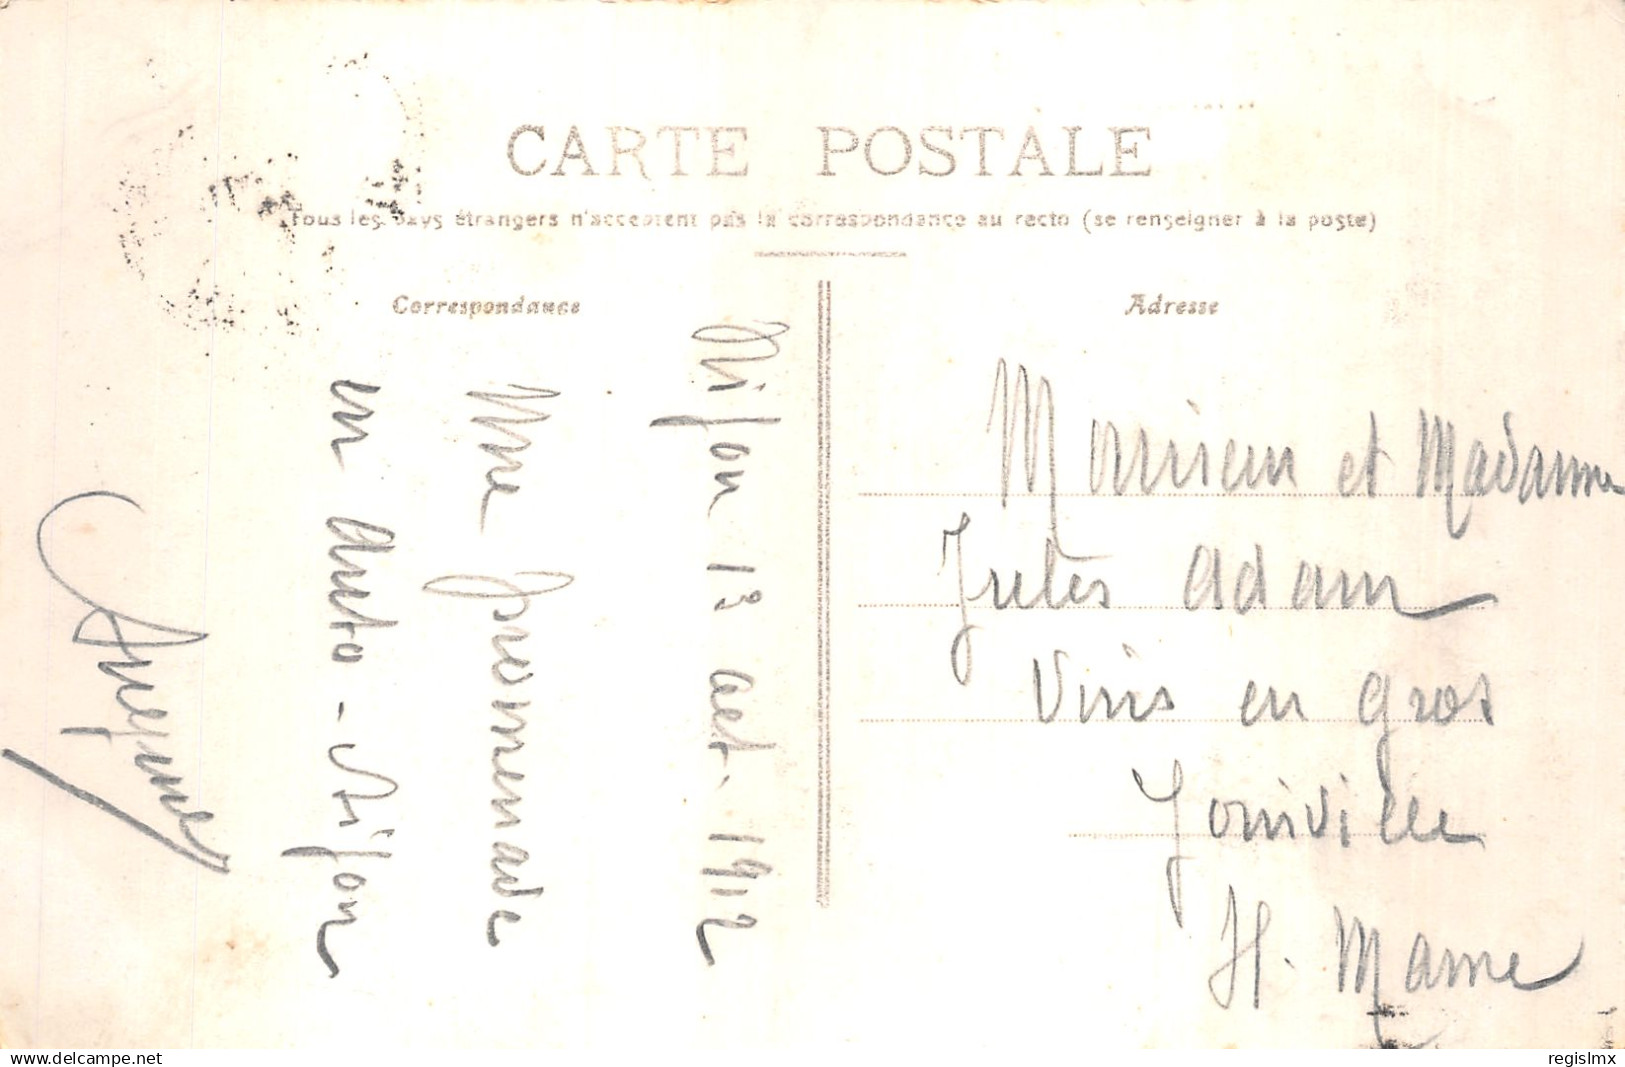 CARTE POSTALE
Tous les pays étrangers n'acceptent pas la correspondance au recto (se renseigner à la poste)
Correspondance
Adresse
13 oct. 1912
Une promenade
en auto -
Monsieur et Madame
Jules Adam
Vins en gros
Joinville
H. Marne
delcampe.net
regislmx